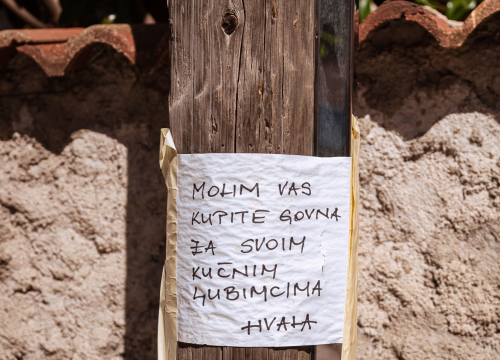 MOLIM VAS
KUPITE GOVNA
ZA SVOIM
KUČNIM
LJUBIMCIMA
HVALA